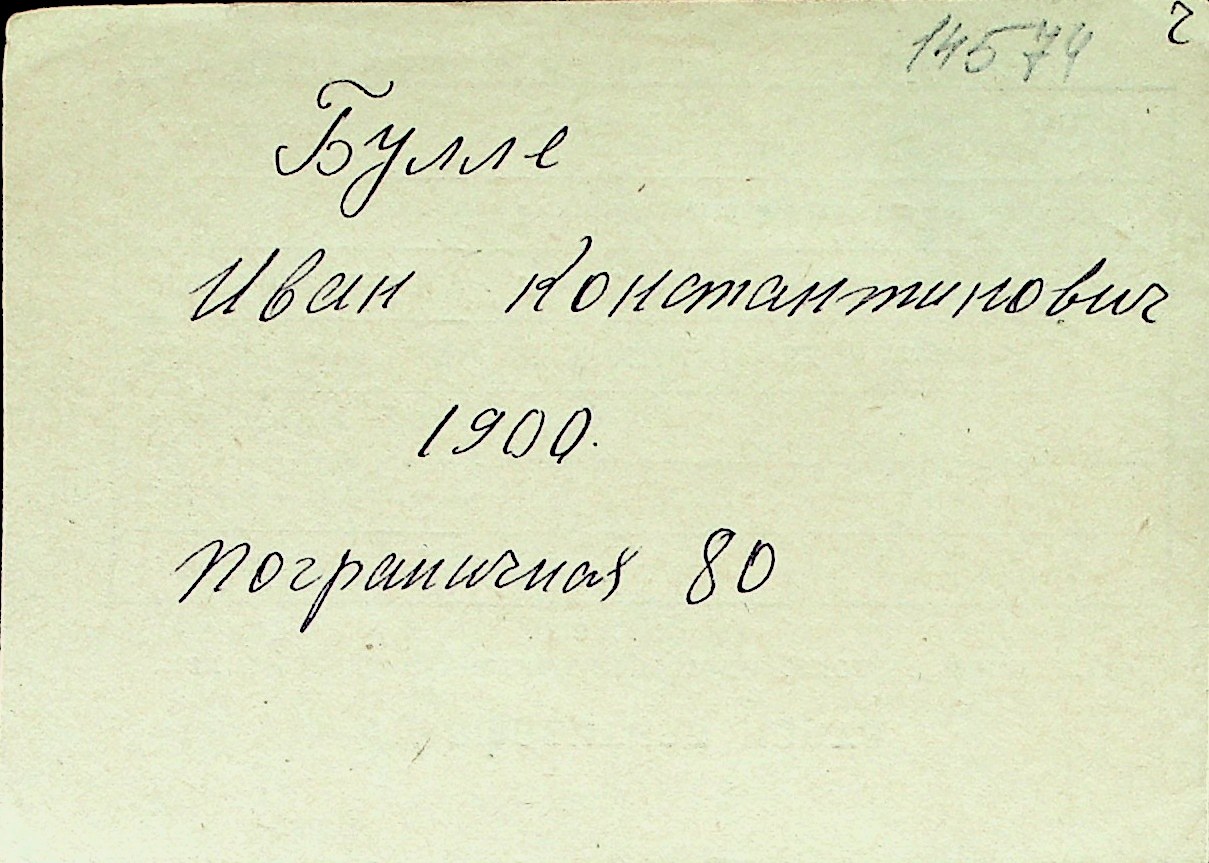 14574 ч
Булле
Иван Константинович
1900.
пограничная 80